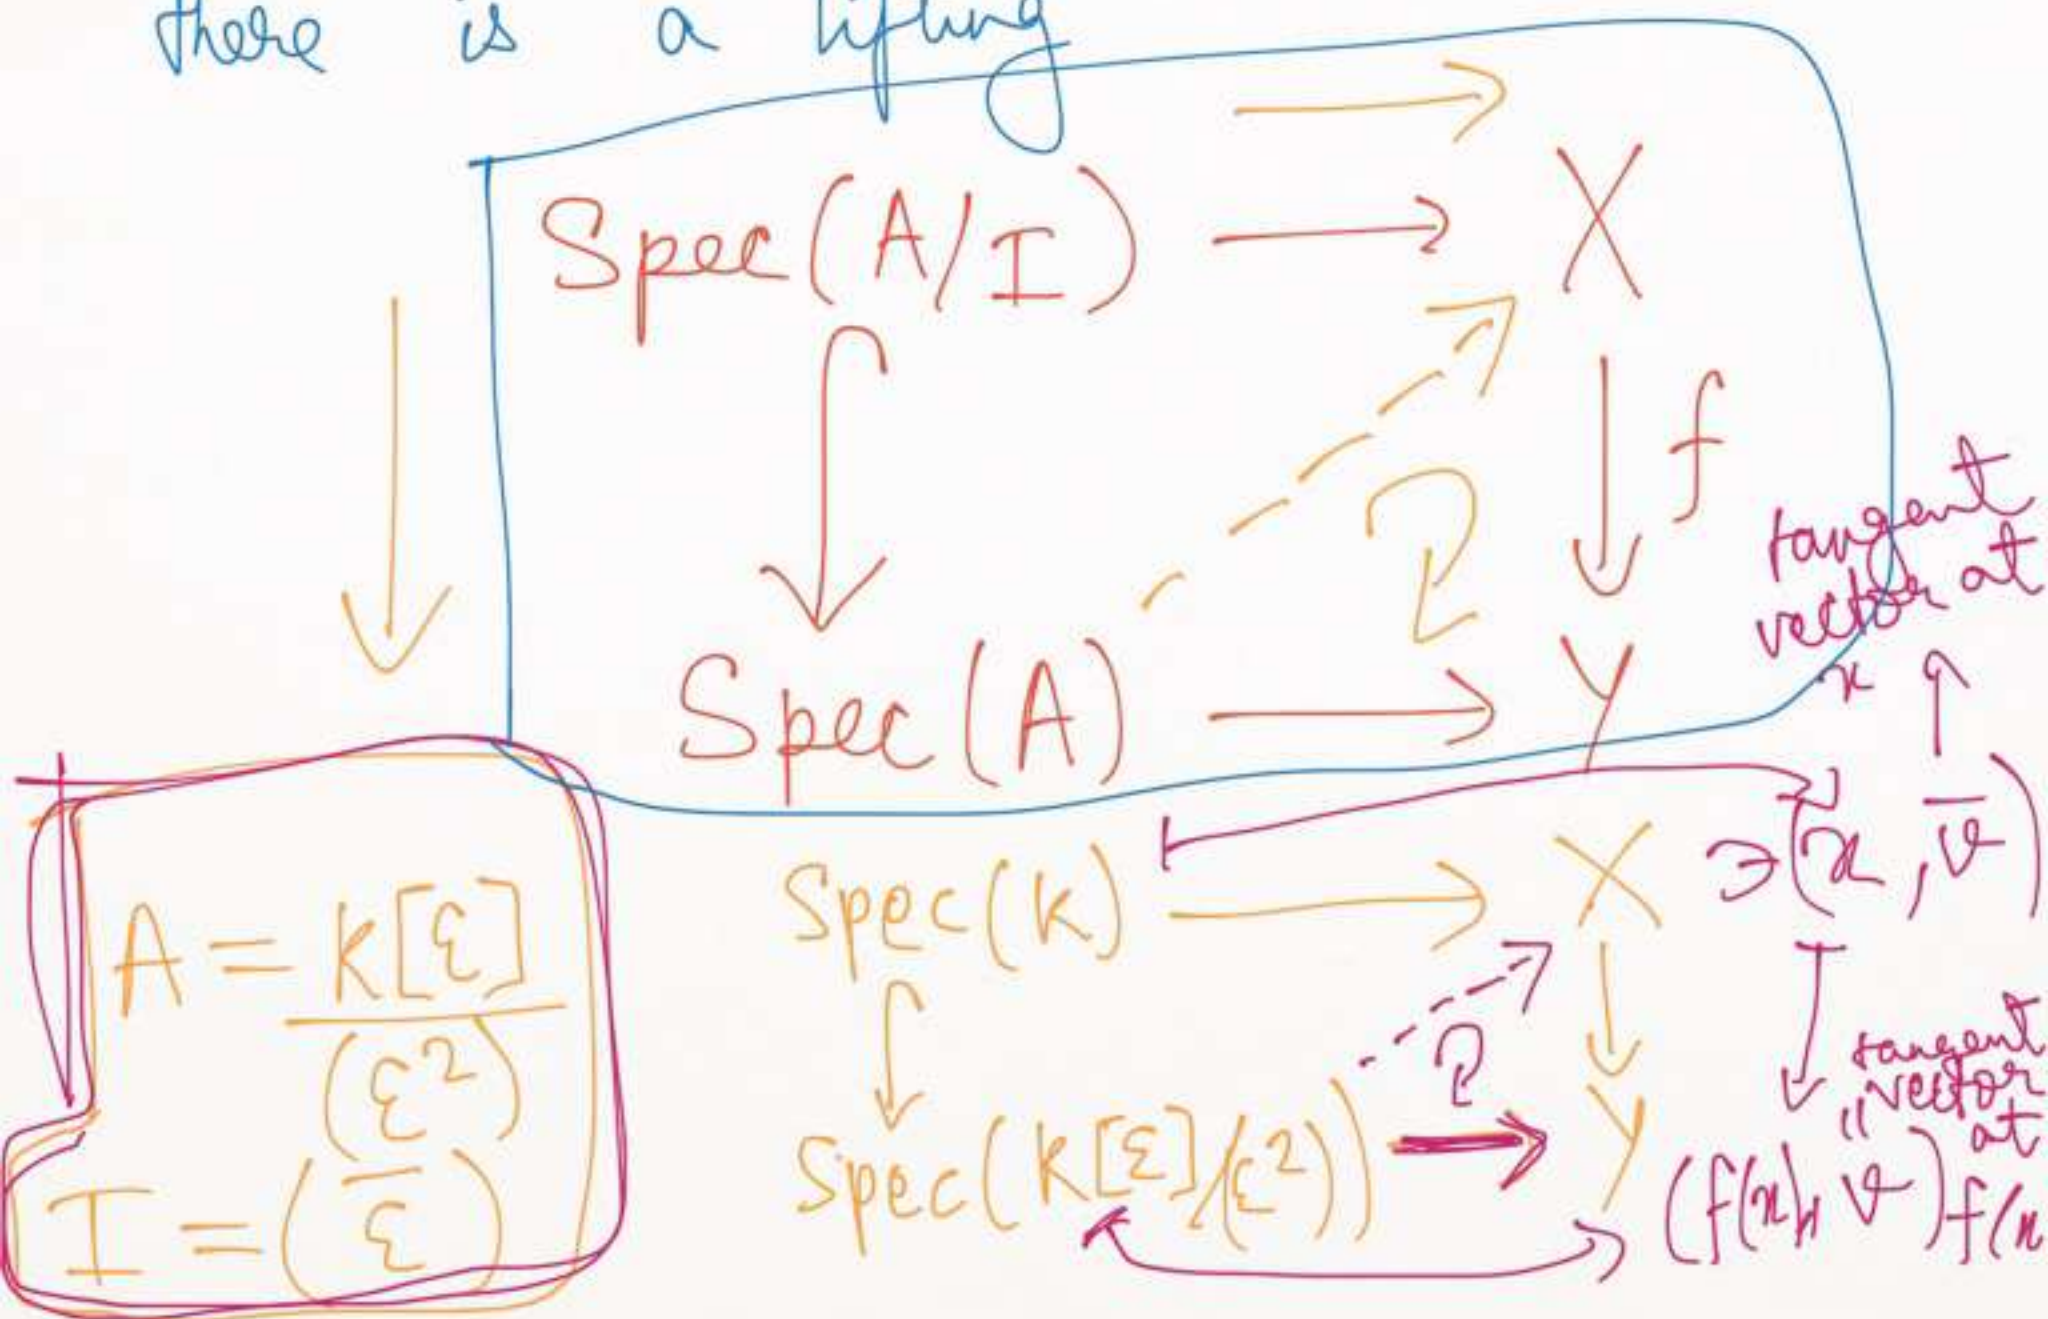 there is a lifting
Spec(A/I) → X
f
?
Spec(A) → Y
tangent
vector at
x
A = k[ε]
(ε²)
I = (ε̅)
Spec(k) → X ∋ (x, v̅)
?
Spec(k[ε]/(ε²)) → Y
(f(x), v)
tangent
vector
at
f(x